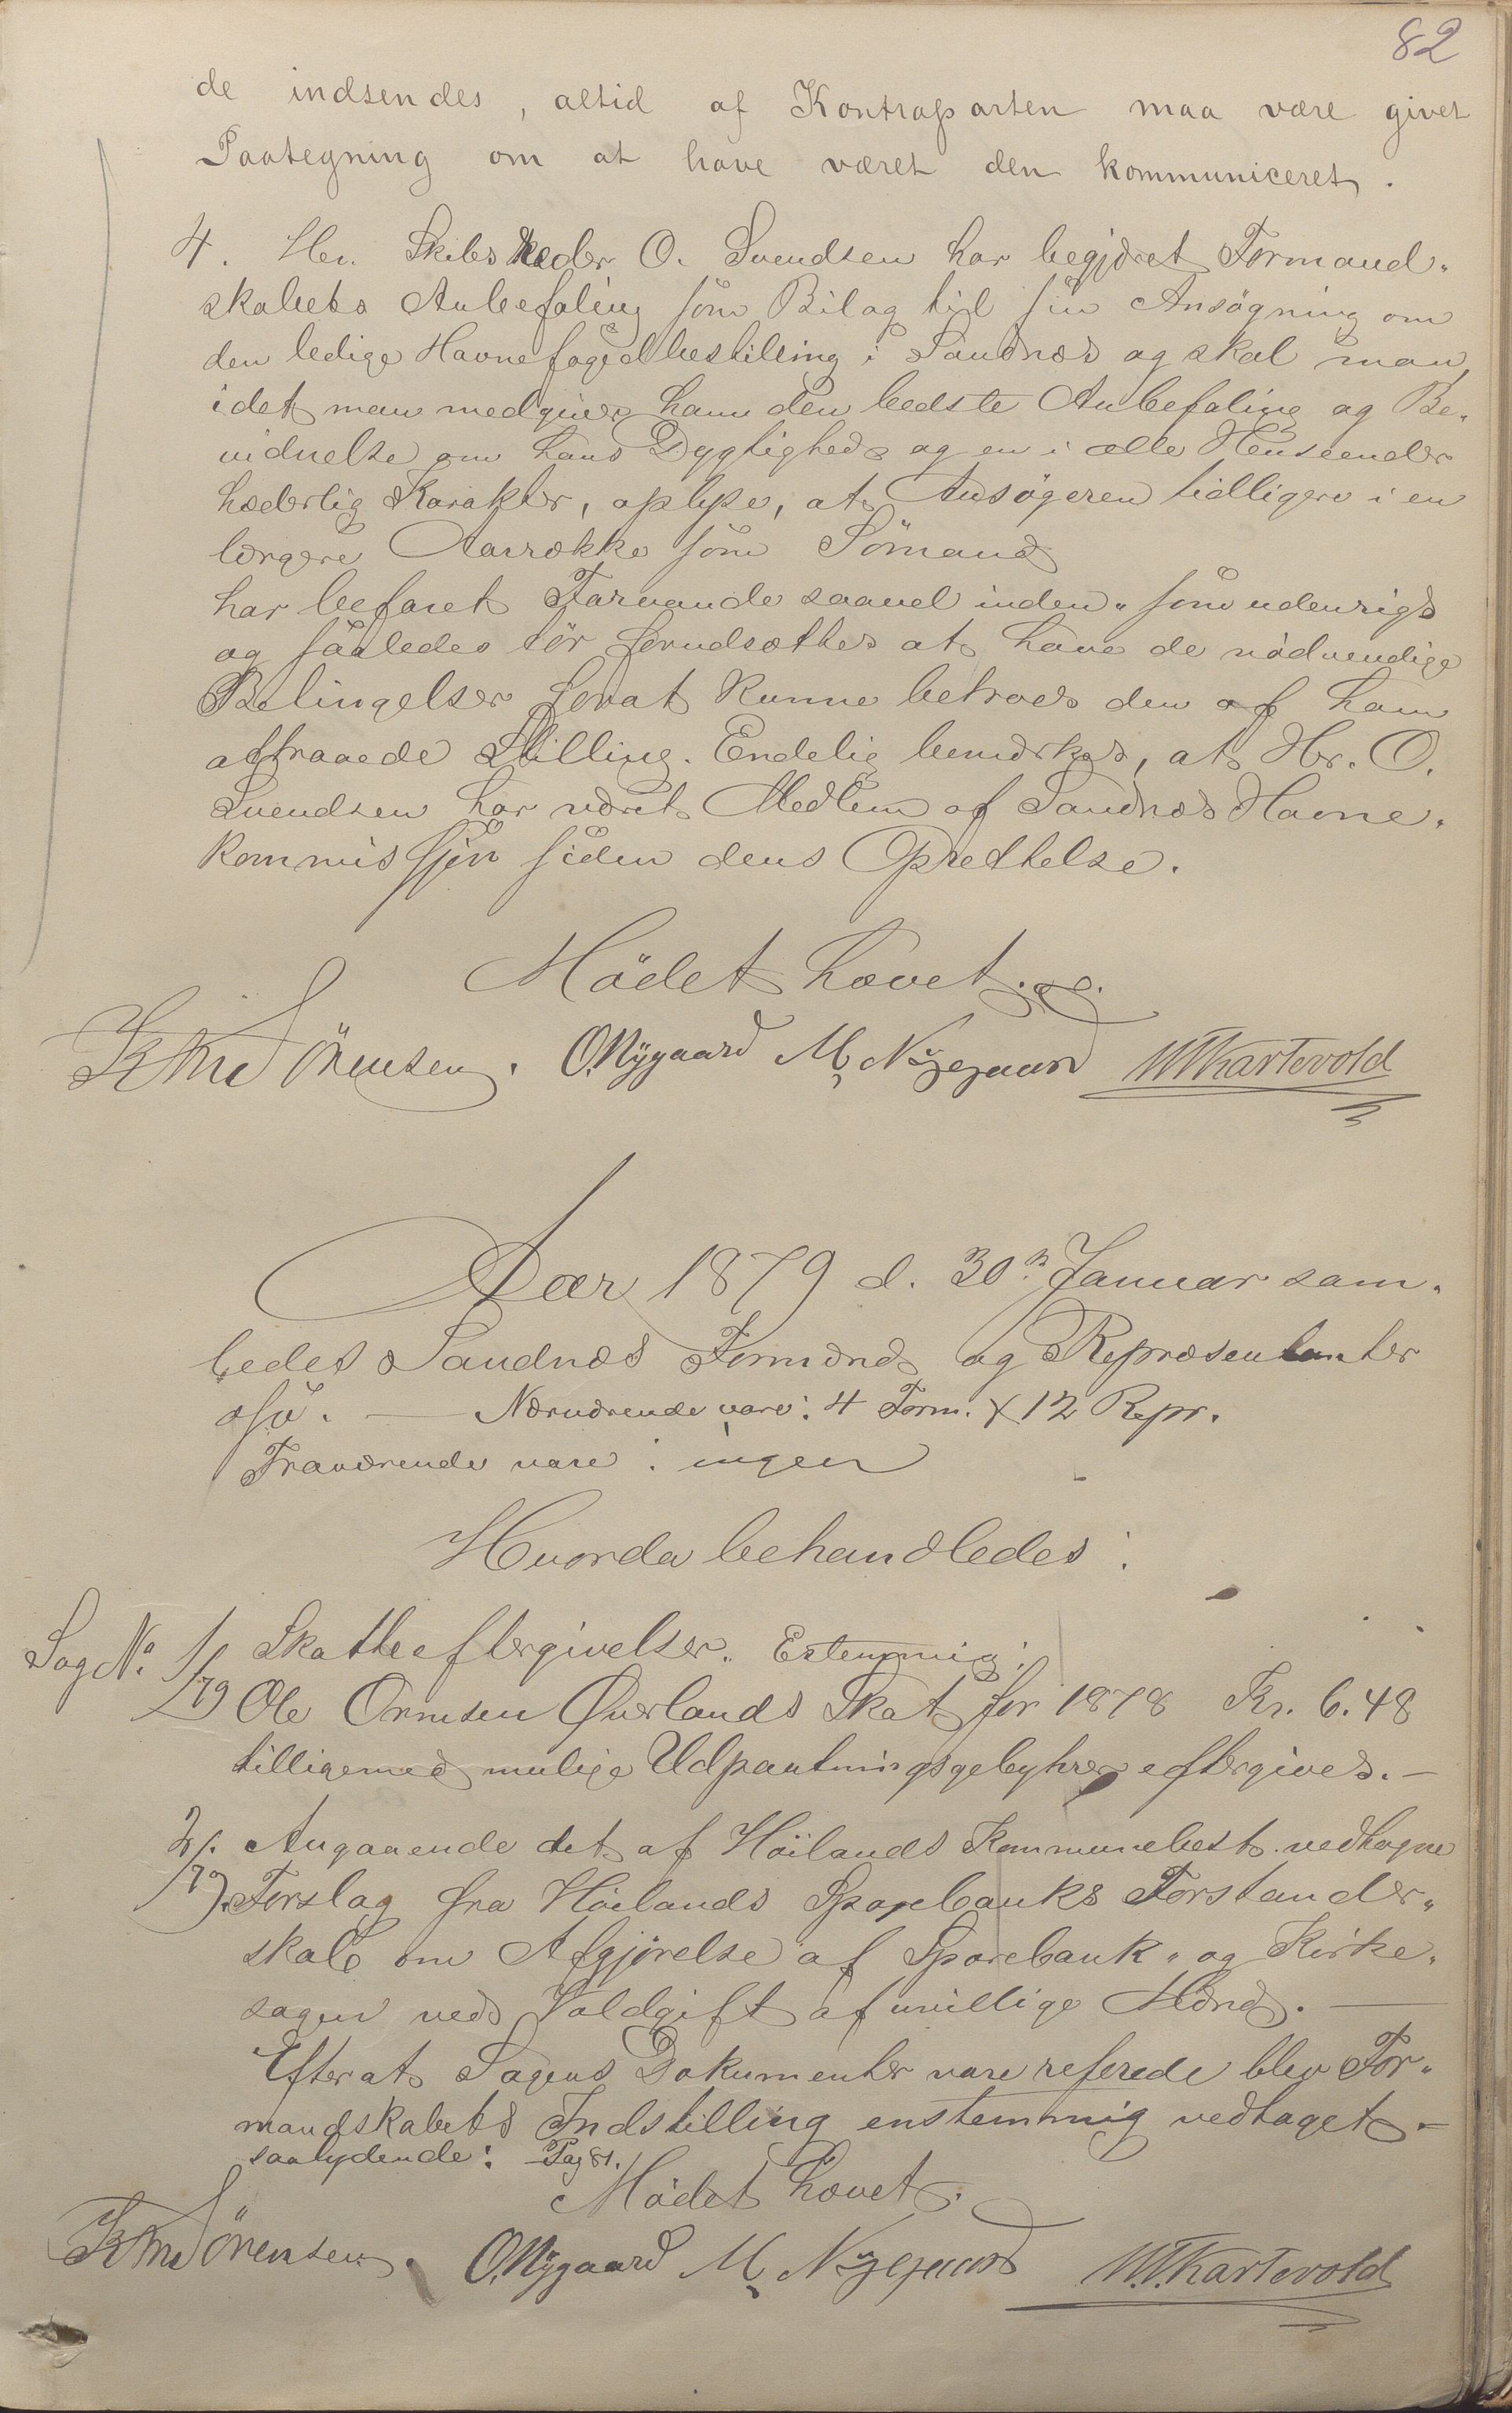 82
de indsendes, altid af Kontraparten maa være givet
Paategning om at have været den kommuniceret.
4. Hr. Skibsreder O. Svendsen har begjæret Formand-
skabets Anbefaling som Bilag til sin Ansögning om
den ledige Havnefogedbestilling i Sandnæs og skal man,
idet man medgiver ham den bedste Anbefaling og Be-
vidnelse om hans Dygtighed og en i alle Henseender
hæderlig Karakter, oplyse, at Ansögeren tidligere i en
længere Aarrække som Sömand
har befaret Farvande saavel inden- som udenrigs
og saaledes tör forudsættes at have de nödvendige
Betingelser forat kunne betroes den af ham
attraaede Stilling. Endelig bemærkes, at Hr. O.
Svendsen har været Medlem af Sandnæs Havne-
kommissjon siden dens Oprettelse.
Mödet hævet.
Sörensen. O. Nygaard M. Nygaard Skartvold
Aar 1879 d. 30te Januar sam-
ledes Sandnæs Formænd og Repræsentanter
osv. — Nærværende vare: 4 Form. & 12 Repr.
Fraværende vare: ingen
Hvorda behandledes:
Sag No. 1/79 Skatteeftergivelser. Estemmig:
Ole Ormsen Øverlands Skat for 1878 Kr. 6.48
tilligemed mulige Udpantningsgebyhrer eftergives. —
2/79. Angaaende det af Höilands Kommunebest. vedtagne
Forslag fra Höilands Sparebanks Forstander-
skab om Afgjörelse af Sparebank- og Kirke-
sagen ved Voldgift af uvillige Mænd. —
Efterat Sagens Dokumenter vare referede blev For-
mandskabets Indstilling enstemmig vedtaget —
saalydende: Pag 81.
Mödet hævet.
Sörensen. O. Nygaard M. Nygaard Skartvold